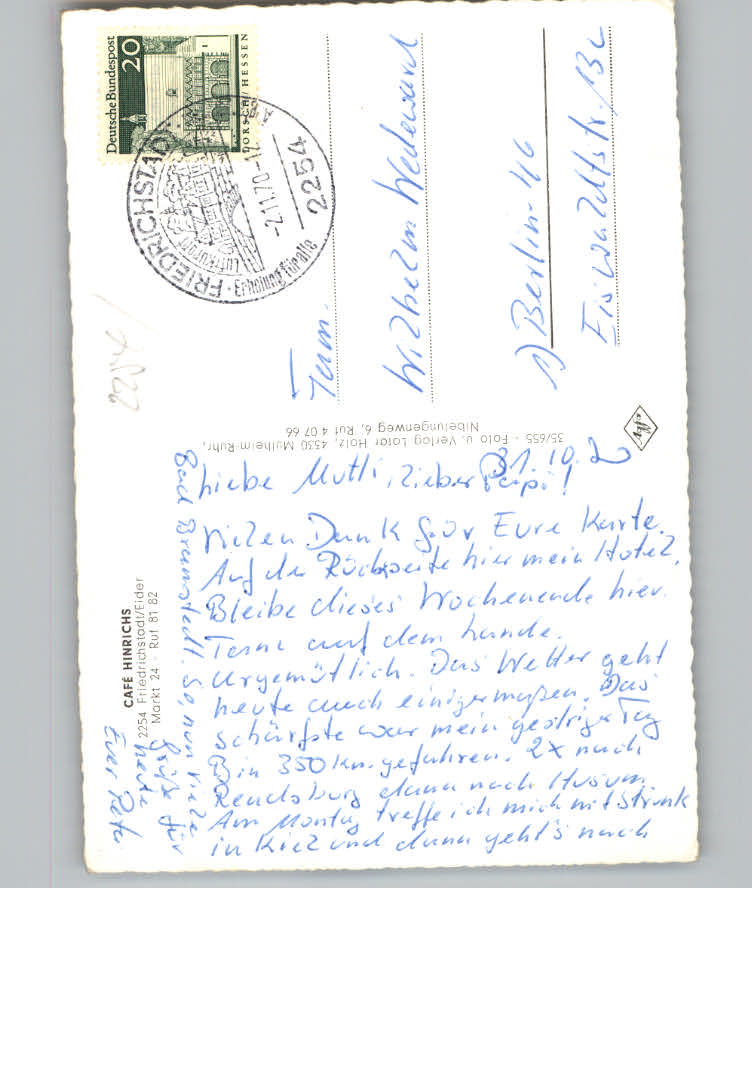 31.10.
Liebe Mutti, lieber Papi!
Vielen Dank für Eure Karte.
Auf der Rückseite hier mein Hotel.
Bleibe dieses Wochenende hier.
auf dem Lande.
Urgemütlich. Das Wetter geht
heute auch einigermaßen. Das
schärfste war mein gestriger Tag
Bin 350 km gefahren. 2x nach
Rendsburg dann nach Husum.
Am Montag treffe ich mich mit
in Kiel und dann geht's nach
Bad Bramstedt. So, nun viele
Grüße für
heute
Euer Peter
CAFÉ HINRICHS
2254 Friedrichstadt/Eider
Markt 24 · Ruf 81 82
35/655 - Foto u. Verlag Lotar Holz, 4330 Mülheim-Ruhr,
Nibelungenweg 6, Ruf 4 07 66
Deutsche Bundespost
20
LORSCH/HESSEN
FRIEDRICHSTADT
-2.11.70-17
2254
Luftkurort
Erholung für alle
Fam.
Wilhelm
1) Berlin-46
Eiswaldtstr. 13c
2254